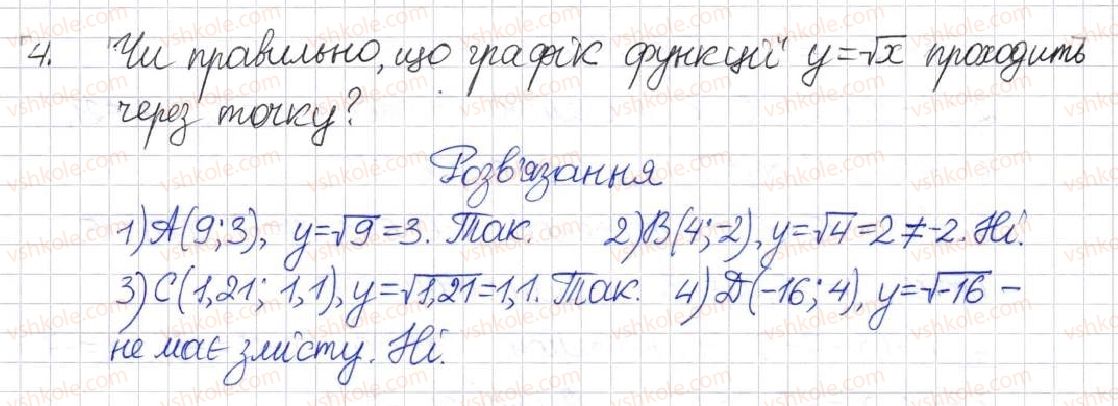 4. Чи правильно, що графік функції y=√x проходить
через точку?
Розв'язання
1) A(9;3), y=√9=3. Так. 2) B(4;-2), y=√4=2≠-2. Ні.
3) C(1,21; 1,1), y=√1,21=1,1. Так. 4) D(-16; 4), y=√-16 –
не має змісту. Ні.